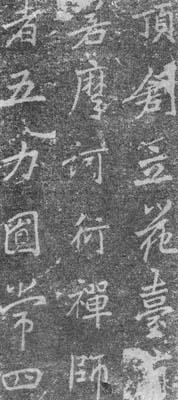 頂創立花臺
若摩訶衍禪師
者五力圓常四